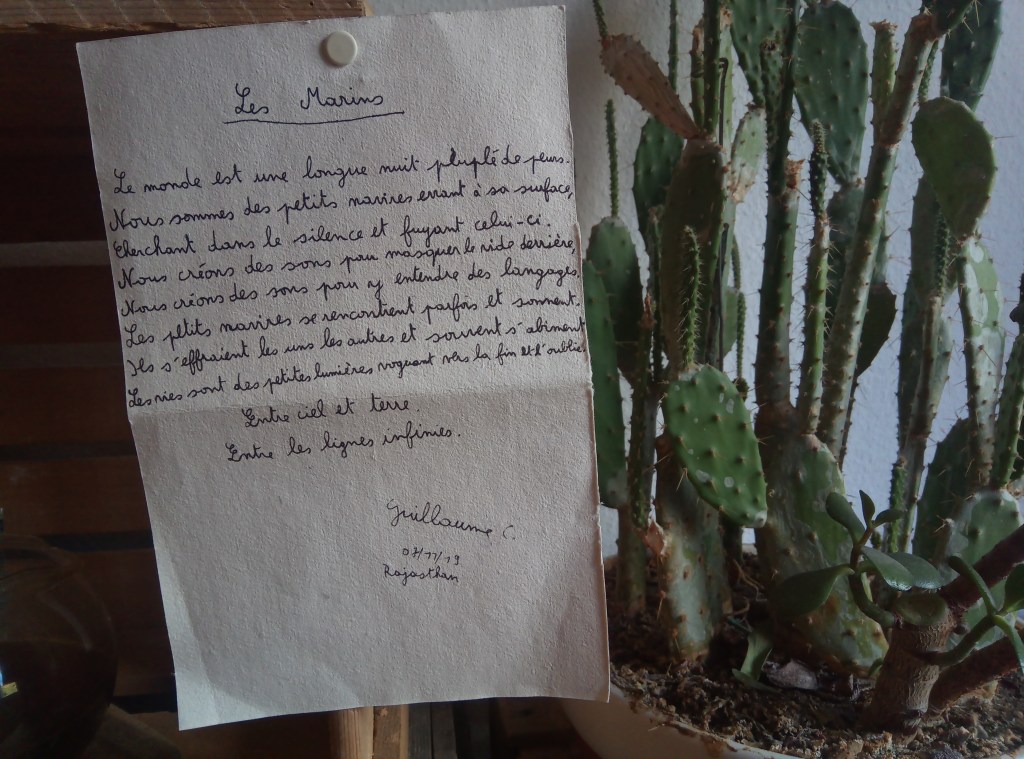 Les Marins
Le monde est une longue nuit pluplé de peurs.
Nous sommes des petits navires errant à sa surface,
Cherchant dans le silence et fuyant celui-ci.
Nous créons des sons pour masquer le vide derrière,
Nous créons des sons pour y entendre des langages.
Les petits navires se rencontrent parfois et sonnent.
Ils s'effraient les uns les autres et souvent s'abiment
Les vies sont des petites lumières voguant vers la fin et l'oubli.
Entre ciel et terre.
Entre les lignes infinies.
Guillaume C.
07/11/19
Rajasthan